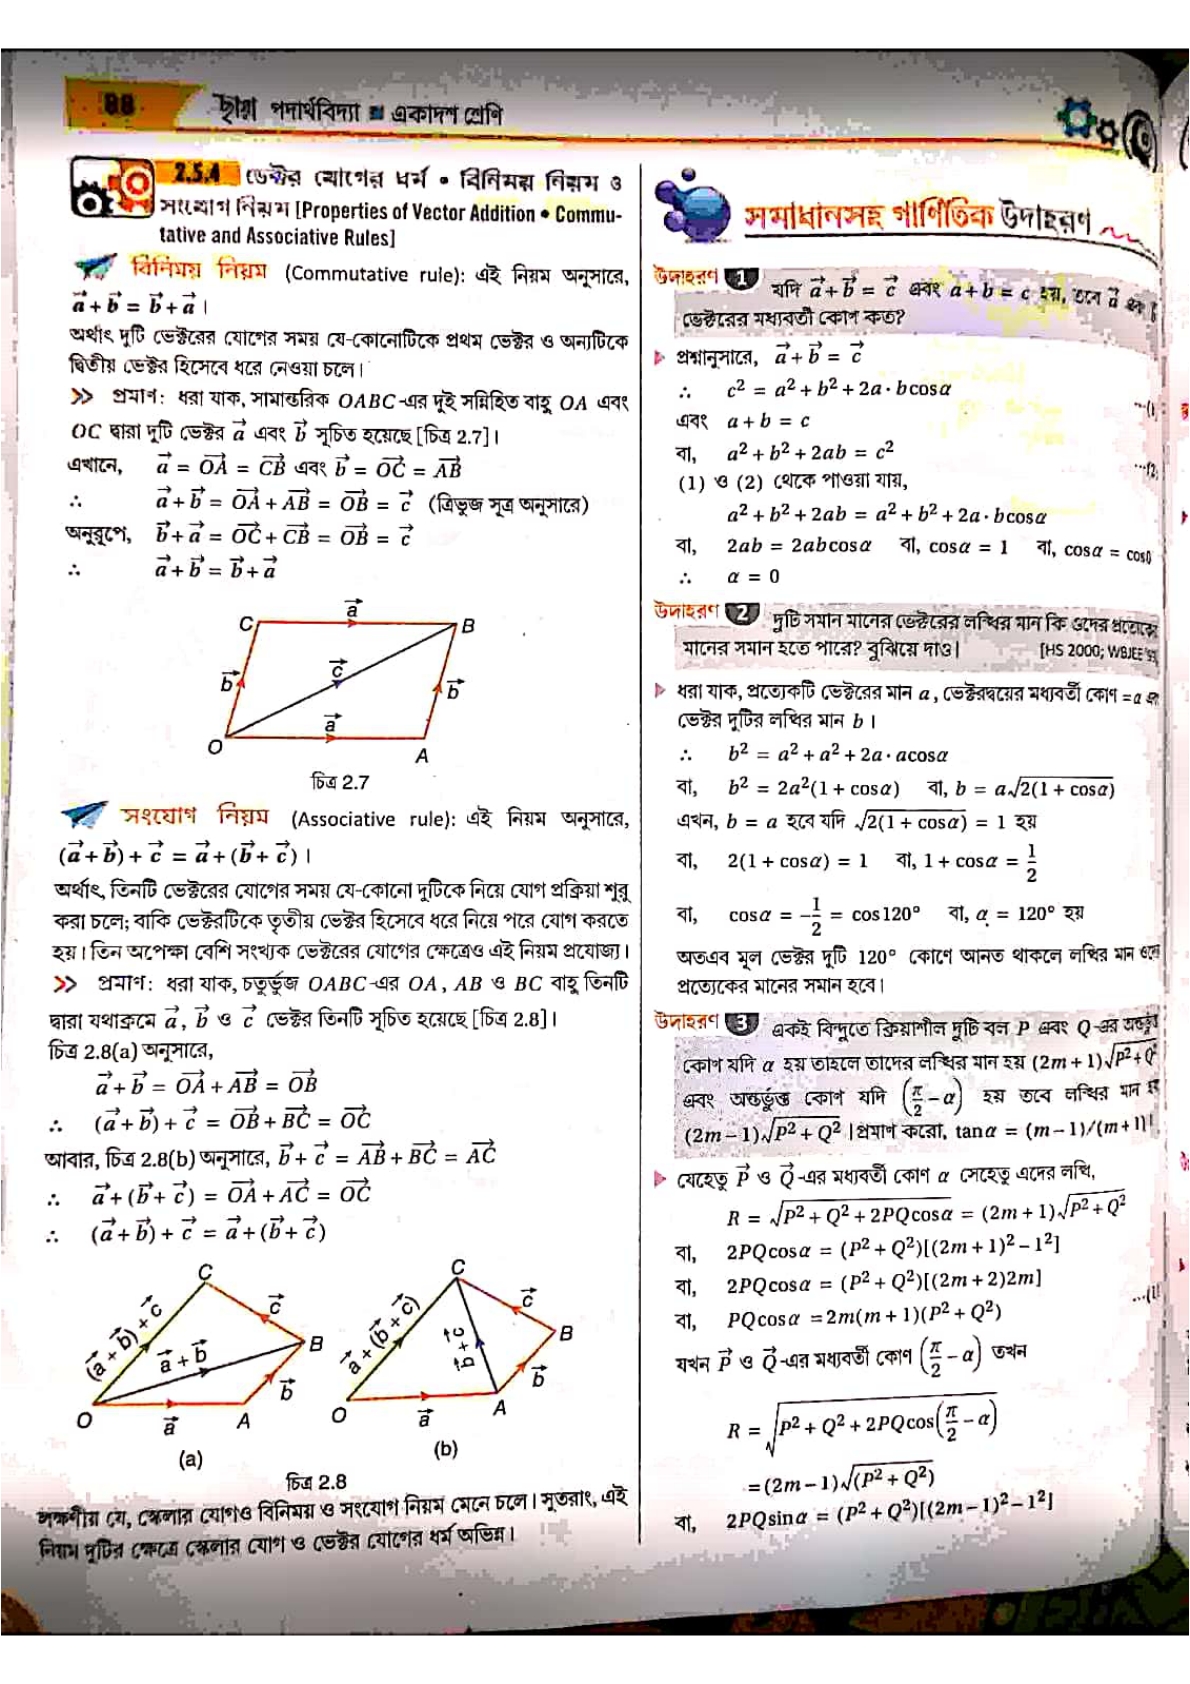 88 ছায়া পদার্থবিদ্যা ■ একাদশ শ্রেণি
2.5.4 ভেক্টর যোগের ধর্ম • বিনিময় নিয়ম ও
সংযোগ নিয়ম [Properties of Vector Addition • Commu-
tative and Associative Rules]
বিনিময় নিয়ম (Commutative rule): এই নিয়ম অনুসারে,
$\vec{a}+\vec{b}=\vec{b}+\vec{a}$ ।
অর্থাৎ দুটি ভেক্টরের যোগের সময় যে-কোনোটিকে প্রথম ভেক্টর ও অন্যটিকে
দ্বিতীয় ভেক্টর হিসেবে ধরে নেওয়া চলে।
>> প্রমাণ: ধরা যাক, সামান্তরিক OABC-এর দুই সন্নিহিত বাহু OA এবং
OC দ্বারা দুটি ভেক্টর $\vec{a}$ এবং $\vec{b}$ সূচিত হয়েছে [চিত্র 2.7]।
এখানে, $\vec{a}=\vec{OA}=\vec{CB}$ এবং $\vec{b}=\vec{OC}=\vec{AB}$
∴ $\vec{a}+\vec{b}=\vec{OA}+\vec{AB}=\vec{OB}=\vec{c}$ (ত্রিভুজ সূত্র অনুসারে)
অনুরূপে, $\vec{b}+\vec{a}=\vec{OC}+\vec{CB}=\vec{OB}=\vec{c}$
∴ $\vec{a}+\vec{b}=\vec{b}+\vec{a}$
C $\vec{a}$ B
$\vec{b}$ $\vec{c}$ $\vec{b}$
O $\vec{a}$ A
চিত্র 2.7
সংযোগ নিয়ম (Associative rule): এই নিয়ম অনুসারে,
$(\vec{a}+\vec{b})+\vec{c}=\vec{a}+(\vec{b}+\vec{c})$ ।
অর্থাৎ, তিনটি ভেক্টরের যোগের সময় যে-কোনো দুটিকে নিয়ে যোগ প্রক্রিয়া শুরু
করা চলে; বাকি ভেক্টরটিকে তৃতীয় ভেক্টর হিসেবে ধরে নিয়ে পরে যোগ করতে
হয়। তিন অপেক্ষা বেশি সংখ্যক ভেক্টরের যোগের ক্ষেত্রেও এই নিয়ম প্রযোজ্য।
>> প্রমাণ: ধরা যাক, চতুর্ভুজ OABC-এর OA, AB ও BC বাহু তিনটি
দ্বারা যথাক্রমে $\vec{a}$, $\vec{b}$ ও $\vec{c}$ ভেক্টর তিনটি সূচিত হয়েছে [চিত্র 2.8]।
চিত্র 2.8(a) অনুসারে,
$\vec{a}+\vec{b}=\vec{OA}+\vec{AB}=\vec{OB}$
∴ $(\vec{a}+\vec{b})+\vec{c}=\vec{OB}+\vec{BC}=\vec{OC}$
আবার, চিত্র 2.8(b) অনুসারে, $\vec{b}+\vec{c}=\vec{AB}+\vec{BC}=\vec{AC}$
∴ $\vec{a}+(\vec{b}+\vec{c})=\vec{OA}+\vec{AC}=\vec{OC}$
∴ $(\vec{a}+\vec{b})+\vec{c}=\vec{a}+(\vec{b}+\vec{c})$
C $(\vec{a}+\vec{b})+\vec{c}$ $\vec{c}$ B $\vec{a}+\vec{b}$ $\vec{b}$ O $\vec{a}$ A
(a)
C $\vec{a}+(\vec{b}+\vec{c})$ $\vec{c}$ B $\vec{b}+\vec{c}$ $\vec{b}$ O $\vec{a}$ A
(b)
চিত্র 2.8
লক্ষণীয় যে, স্কেলার যোগও বিনিময় ও সংযোগ নিয়ম মেনে চলে। সুতরাং, এই
নিয়ম দুটির ক্ষেত্রে স্কেলার যোগ ও ভেক্টর যোগের ধর্ম অভিন্ন।
সমাধানসহ গাণিতিক উদাহরণ
উদাহরণ 1 যদি $\vec{a}+\vec{b}=\vec{c}$ এবং a + b = c হয়, তবে $\vec{a}$ এবং
ভেক্টরের মধ্যবর্তী কোণ কত?
প্রশ্নানুসারে, $\vec{a}+\vec{b}=\vec{c}$
∴ c² = a² + b² + 2a · bcosα ...(1)
এবং a + b = c
বা, a² + b² + 2ab = c² ...(2)
(1) ও (2) থেকে পাওয়া যায়,
a² + b² + 2ab = a² + b² + 2a · bcosα
বা, 2ab = 2abcosα বা, cosα = 1 বা, cosα = cos0
∴ α = 0
উদাহরণ 2 দুটি সমান মানের ভেক্টরের লব্ধির মান কি ওদের প্রত্যেকের
মানের সমান হতে পারে? বুঝিয়ে দাও। [HS 2000; WBJEE
ধরা যাক, প্রত্যেকটি ভেক্টরের মান a, ভেক্টরদ্বয়ের মধ্যবর্তী কোণ = α এবং
ভেক্টর দুটির লব্ধির মান b ।
∴ b² = a² + a² + 2a · acosα
বা, b² = 2a²(1 + cosα) বা, b = a√2(1 + cosα)
এখন, b = a হবে যদি √2(1 + cosα) = 1 হয়
বা, 2(1 + cosα) = 1 বা, 1 + cosα = 1/2
বা, cosα = −1/2 = cos120° বা, α = 120° হয়
অতএব মূল ভেক্টর দুটি 120° কোণে আনত থাকলে লব্ধির মান ওদের
প্রত্যেকের মানের সমান হবে।
উদাহরণ 3 একই বিন্দুতে ক্রিয়াশীল দুটি বল P এবং Q-এর অন্তর্ভুক্ত
কোণ যদি α হয় তাহলে তাদের লব্ধির মান হয় (2m + 1)√P² + Q²
এবং অন্তর্ভুক্ত কোণ যদি (π/2 − α) হয় তবে লব্ধির মান হয়
(2m − 1)√P² + Q² । প্রমাণ করো, tanα = (m − 1)/(m + 1)।
যেহেতু $\vec{P}$ ও $\vec{Q}$-এর মধ্যবর্তী কোণ α সেহেতু এদের লব্ধি,
R = √P² + Q² + 2PQcosα = (2m + 1)√P² + Q²
বা, 2PQcosα = (P² + Q²)[(2m + 1)² − 1²]
বা, 2PQcosα = (P² + Q²)[(2m + 2)2m]
বা, PQcosα = 2m(m + 1)(P² + Q²) ...(1)
যখন $\vec{P}$ ও $\vec{Q}$-এর মধ্যবর্তী কোণ (π/2 − α) তখন
R = √P² + Q² + 2PQcos(π/2 − α)
= (2m − 1)√(P² + Q²)
বা, 2PQsinα = (P² + Q²)[(2m − 1)² − 1²]